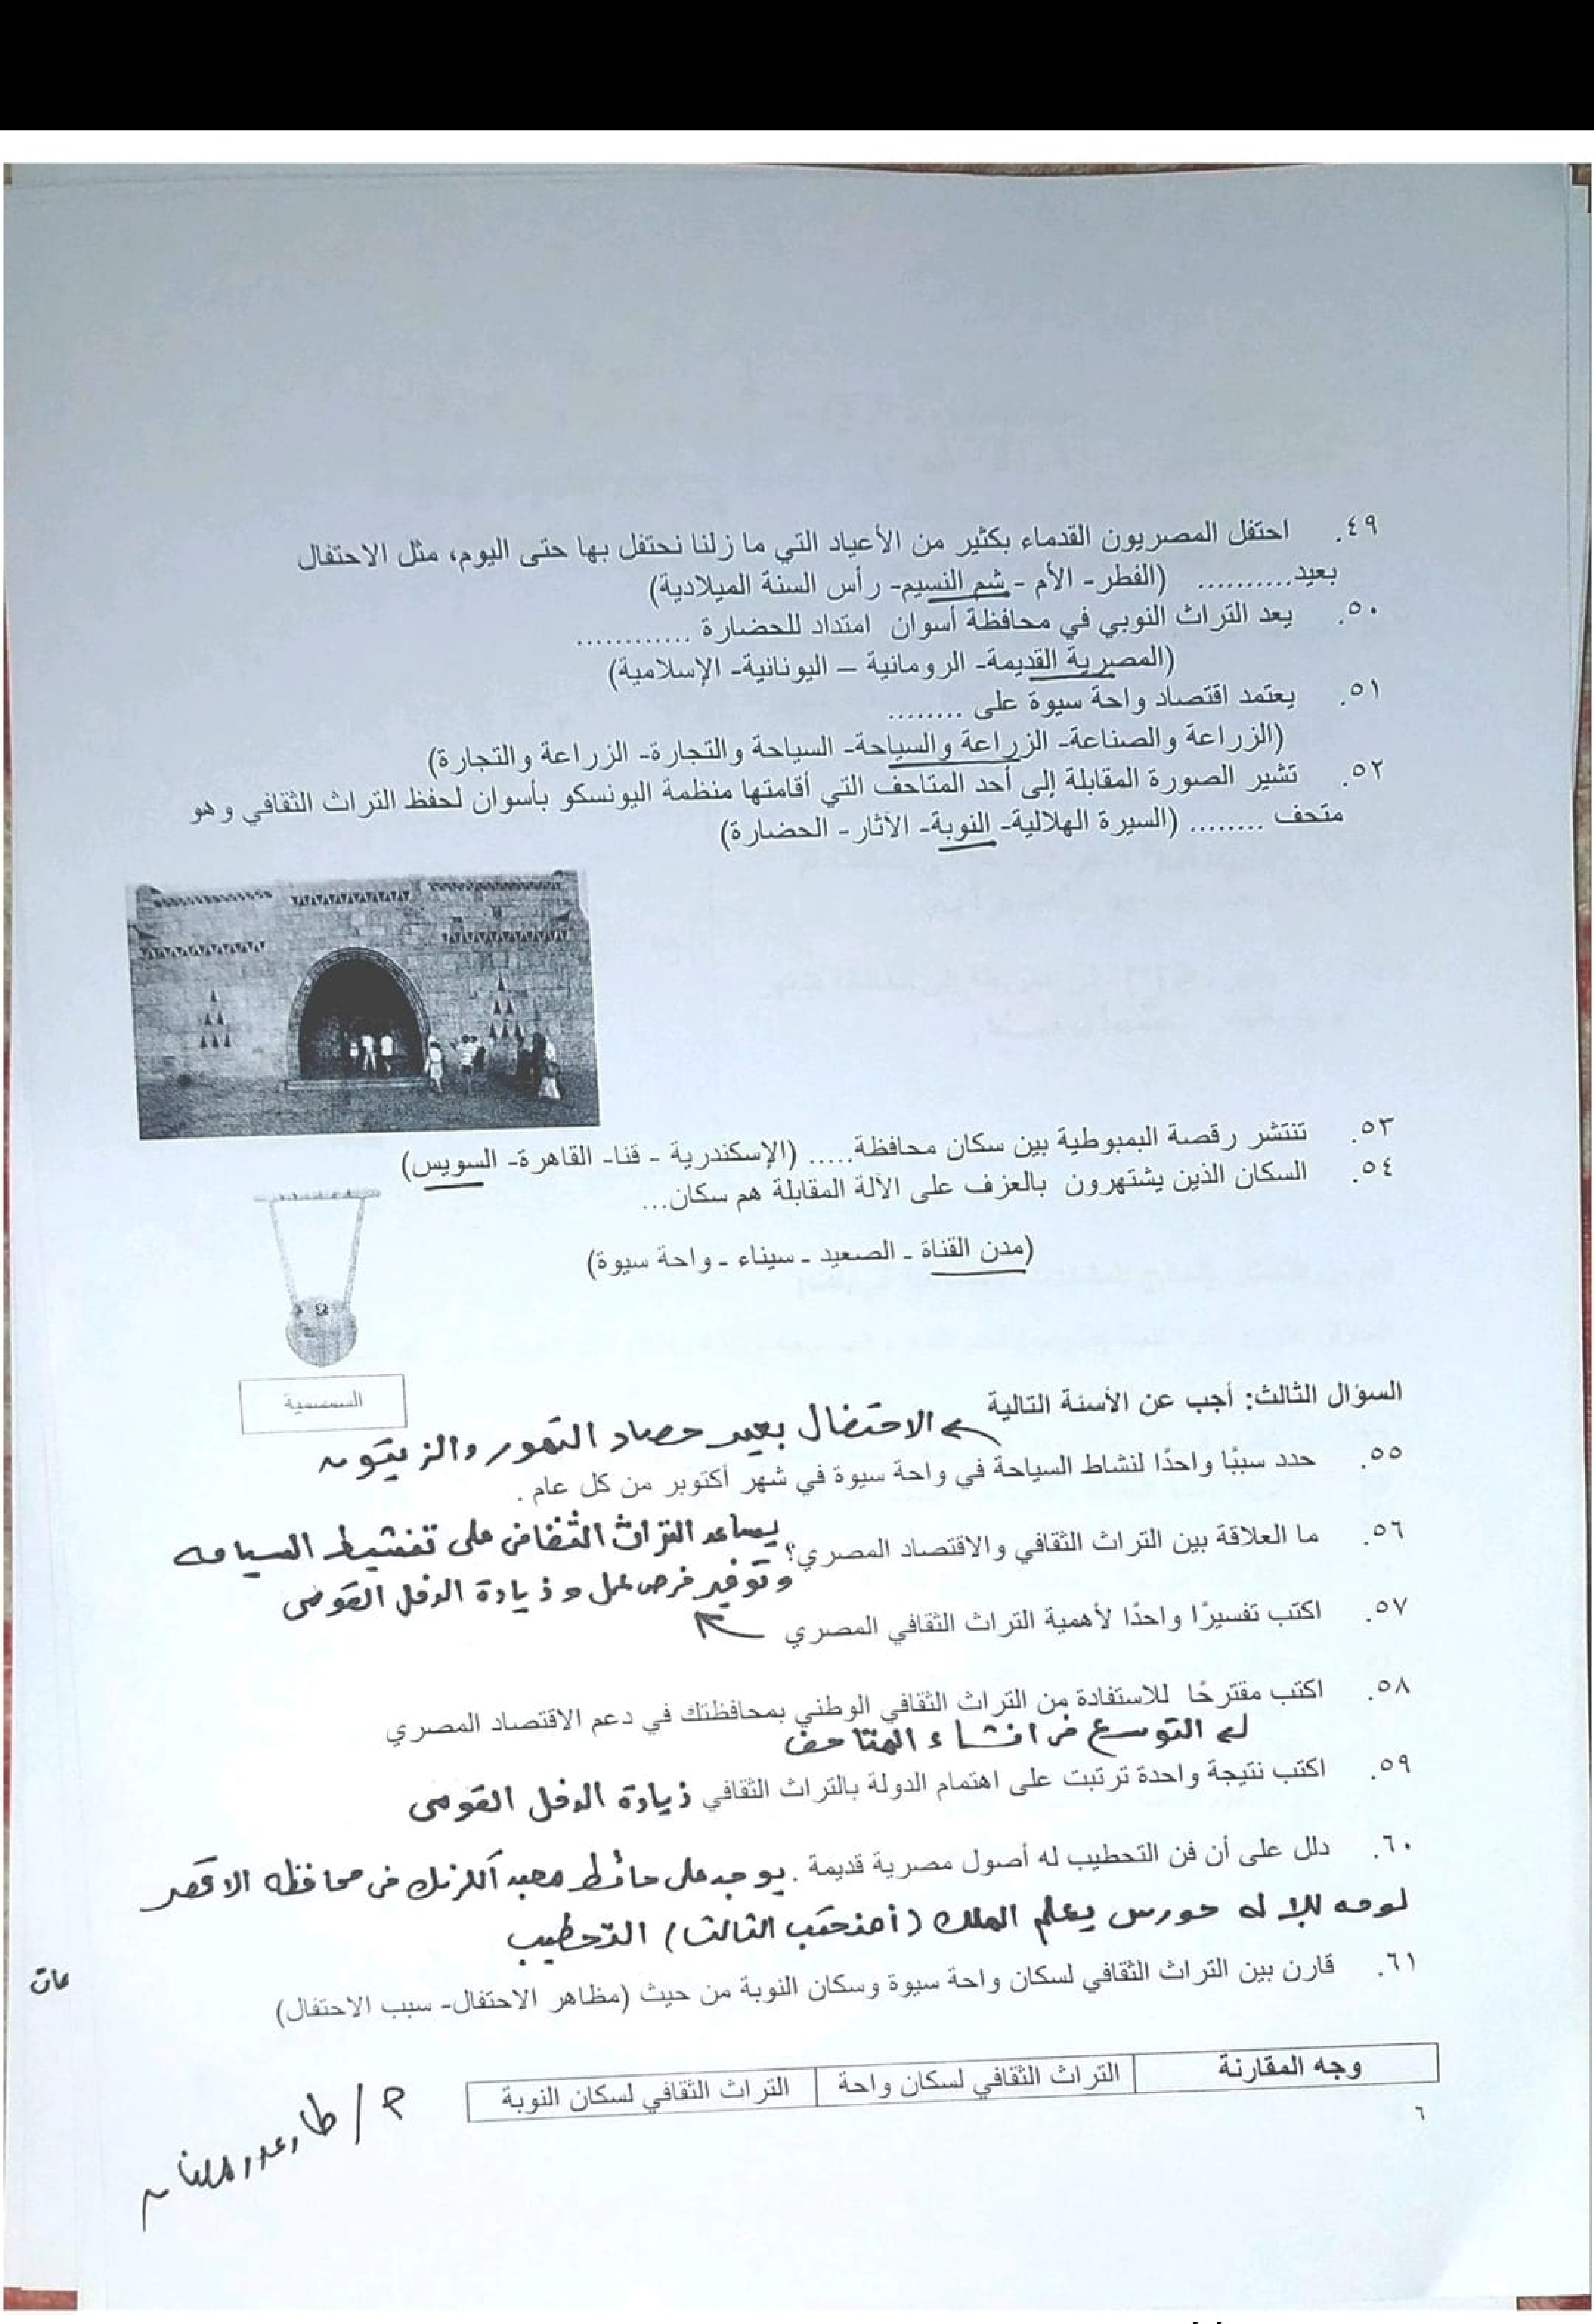 ٤٩. احتفل المصريون القدماء بكثير من الأعياد التي ما زلنا نحتفل بها حتى اليوم، مثل الاحتفال
بعيد.......... (الفطر- الأم - شم النسيم- رأس السنة الميلادية)
٥٠. يعد التراث النوبي في محافظة أسوان امتداد للحضارة ............
(المصرية القديمة- الرومانية – اليونانية- الإسلامية)
٥١. يعتمد اقتصاد واحة سيوة على ........
(الزراعة والصناعة- الزراعة والسياحة- السياحة والتجارة- الزراعة والتجارة)
٥٢. تشير الصورة المقابلة إلى أحد المتاحف التي أقامتها منظمة اليونسكو بأسوان لحفظ التراث الثقافي وهو
متحف ........ (السيرة الهلالية- النوبة- الآثار- الحضارة)
٥٣. تنتشر رقصة البمبوطية بين سكان محافظة..... (الإسكندرية - قنا- القاهرة- السويس)
٥٤. السكان الذين يشتهرون بالعزف على الآلة المقابلة هم سكان...
(مدن القناة - الصعيد - سيناء - واحة سيوة)
السمسمية
السؤال الثالث: أجب عن الأسئة التالية
الاحتفال بعيد حصاد التمور والزيتون
٥٥. حدد سببًا واحدًا لنشاط السياحة في واحة سيوة في شهر أكتوبر من كل عام .
٥٦. ما العلاقة بين التراث الثقافي والاقتصاد المصري؟ يساعد التراث الثقافى على تنشيط السياحه
وتوفير فرص عمل وزيادة الدخل القومى
٥٧. اكتب تفسيرًا واحدًا لأهمية التراث الثقافي المصري
٥٨. اكتب مقترحًا للاستفادة من التراث الثقافي الوطني بمحافظتك في دعم الاقتصاد المصري
التوسع فى انشاء المتاحف
٥٩. اكتب نتيجة واحدة ترتبت على اهتمام الدولة بالتراث الثقافي زيادة الدخل القومى
٦٠. دلل على أن فن التحطيب له أصول مصرية قديمة . يوجد على حائط معبد الكرنك فى محافظه الاقصر
لوحه للاله حورس يعلم الملك (أمنحتب الثالث) التحطيب
٦١. قارن بين التراث الثقافي لسكان واحة سيوة وسكان النوبة من حيث (مظاهر الاحتفال- سبب الاحتفال)
عات
وجه المقارنة التراث الثقافي لسكان واحة التراث الثقافي لسكان النوبة
٦